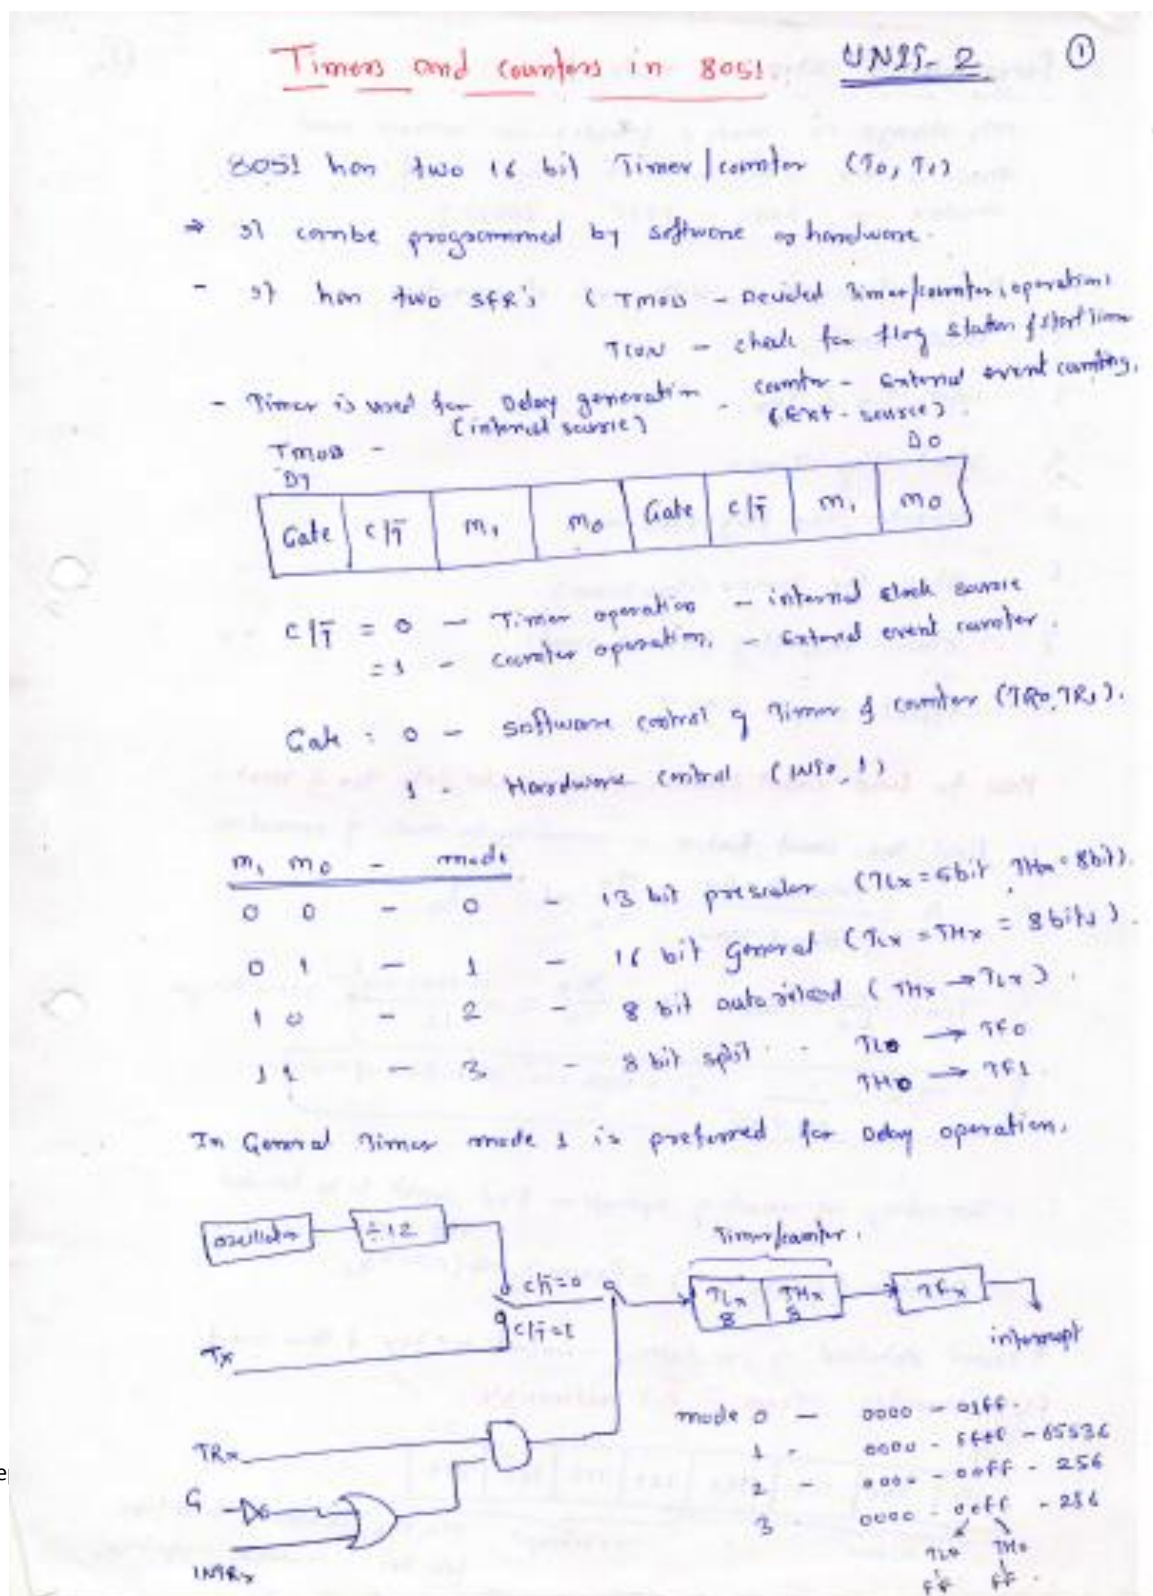 Timers and counters in 8051. UNIT-2 ①
8051 has two 16 bit Timer/counter (T0, T1)
⇒ It can be programmed by software or hardware.
- It has two SFR's (TMOD - Decided Timer/counter, operations
TCON - check for flag status & start Timer
- Timer is used for Delay generation - counter - External event counting.
(internal source) (Ext - source).
TMOD -
D7 D0
Gate C/T̅ M1 M0 Gate C/T̅ M1 M0
C/T̅ = 0 - Timer operation - internal clock source
= 1 - counter operation. - External event counter.
Gate = 0 - Software control of Timer & counter (TR0, TR1).
1 - Hardware control (INT0, 1)
M1 M0 - mode
0 0 - 0 - 13 bit prescalar (TLx = 5bit, THx = 8bit).
0 1 - 1 - 16 bit General (TLx = THx = 8bits).
1 0 - 2 - 8 bit auto reload (THx → TLx).
1 1 - 3 - 8 bit split - TL0 → TF0
TH0 → TF1.
In General Timer mode 1 is preferred for Delay operation.
oscillator ÷12 Timer/counter.
C/T̅=0 TLx 8 THx 8 TFx
C/T̅=1 interrupt
Tx
mode 0 - 0000 - 01FF.
TRx 1 - 0000 - FFFF - 65536
2 - 0000 - 00FF - 256
G 3 - 0000 - 00FF - 256
TL0 TH0
INTRx FF FF.